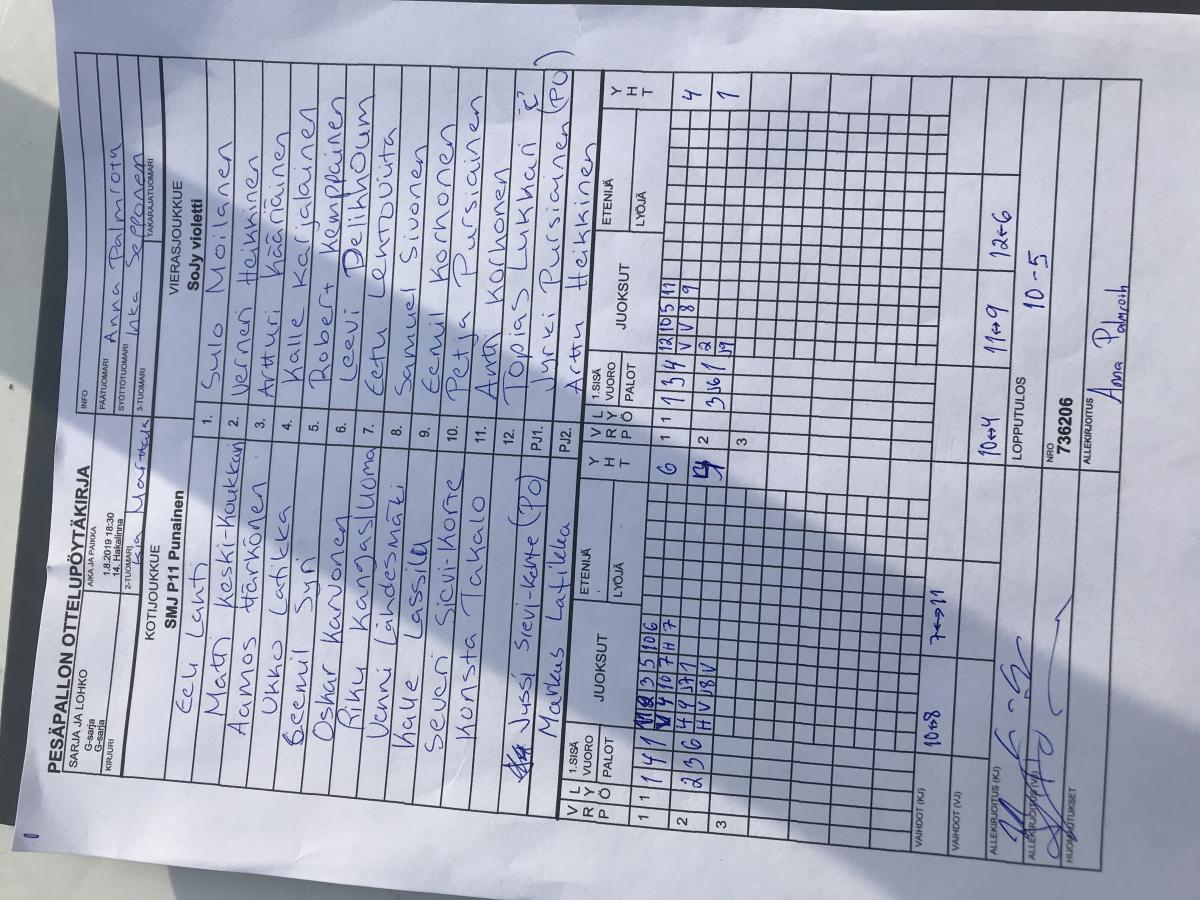 PESÄPALLON OTTELUPÖYTÄKIRJA
SARJA JA LOHKO
G-sarja
G-sarja
AIKA JA PAIKKA
1.8.2019 18:30
14. Hakalinna
INFO
PÄÄTUOMARI Anna Palmroth
SYÖTTÖTUOMARI Inka Sepponen
KIRJURI
2-TUOMARI
3-TUOMARI
TAKARAJATUOMARI
KOTIJOUKKUE
SMJ P11 Punainen
VIERASJOUKKUE
SoJy violetti
Eeli Lanti 1. Sulo Moilanen
Matti Keski-Koukkari 2. Verneri Heikkinen
Aamos Härkönen 3. Artturi Kääriäinen
Ukko Laticka 4. Kalle Karjalainen
Eeemil Syri 5. Robert Kemppainen
Oskar Karvonen 6. Leevi Delihhoum
Riku Kangasluoma 7. Eetu Lehtovuita
Venni Lähdesmäki 8. Samuel Sivonen
Kalle Lassila 9. Eemil Korhonen
Severi Sievi-Korte 10. Petja Pursiainen
Konsta Takalo 11. Antti Korhonen
12. Topias Lukkari "C"
Jussi Sievi-Korte (PO) PJ1. Jyrki Pursiainen (PO)
Markus Latikka PJ2. Arttu Heikkinen
V R P L Y Ö 1.SISÄ VUORO PALOT JUOKSUT ETENIJÄ LYÖJÄ Y H T V R P L Y Ö 1.SISÄ VUORO PALOT JUOKSUT ETENIJÄ LYÖJÄ Y H T
1 1 1 4 1 3 5 10 6 6 1 1 1 3 4 12 10 5 11
V 4 10 7 H 7 V V 8 9 4
2 2 3 6 4 9 J7 1 2 3 J6 1 2 1
H V J8 V J9
3 3
VAIHDOT (KJ) 10↔8 7↔11
VAIHDOT (VJ) 10↔4 11↔9 12↔6
ALLEKIRJOITUS (KJ)
LOPPUTULOS 10-5
ALLEKIRJOITUS (VJ)
NRO
736206
HUOMAUTUKSET
ALLEKIRJOITUS
Anna Palmroth